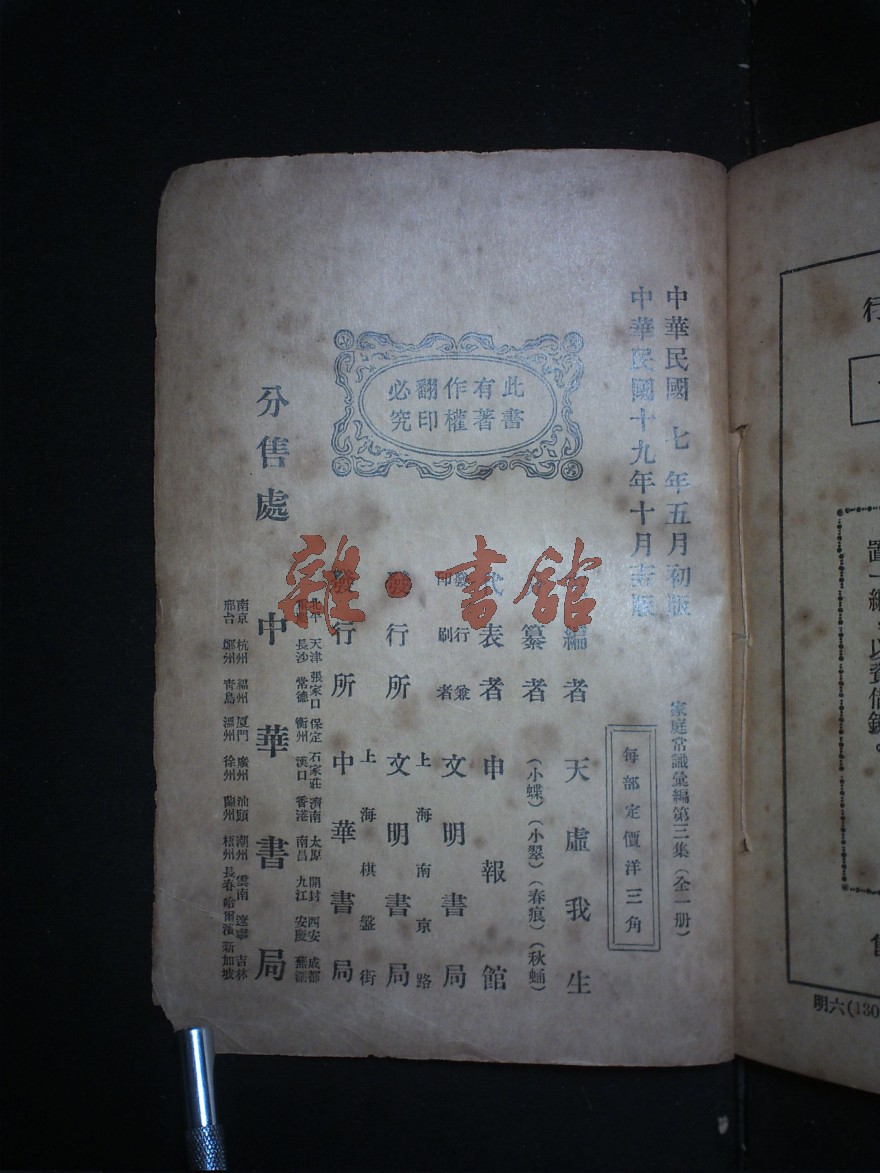 中華民國 七 年五月初版
中華民國十九年十月十二版
家庭常識彙編第三集（全一册）
每部定價洋三角
此書
有著
作權
翻印
必究
編者 天虛我生
纂者 （小蝶）（小翠）（春痕）（秋蛹）
代表者 申報館
發行兼
印刷者 文明書局
上海南京路
發行所 文明書局
上海棋盤街
發行所 中華書局
分售處 中華書局
北平 天津 張家口 保定 石家莊 濟南 太原 開封 西安 成都
長沙 常德 衡州 漢口 香港 南昌 九江 安慶 蕪湖
南京 杭州 福州 厦門 廣州 汕頭 潮州 雲南 遼寧 吉林
邢台 鄭州 青島 溫州 徐州 蘭州 梧州 長春 哈爾濱 新加坡
雜·書館
行
置一編，以資借鏡。
售
明六(130